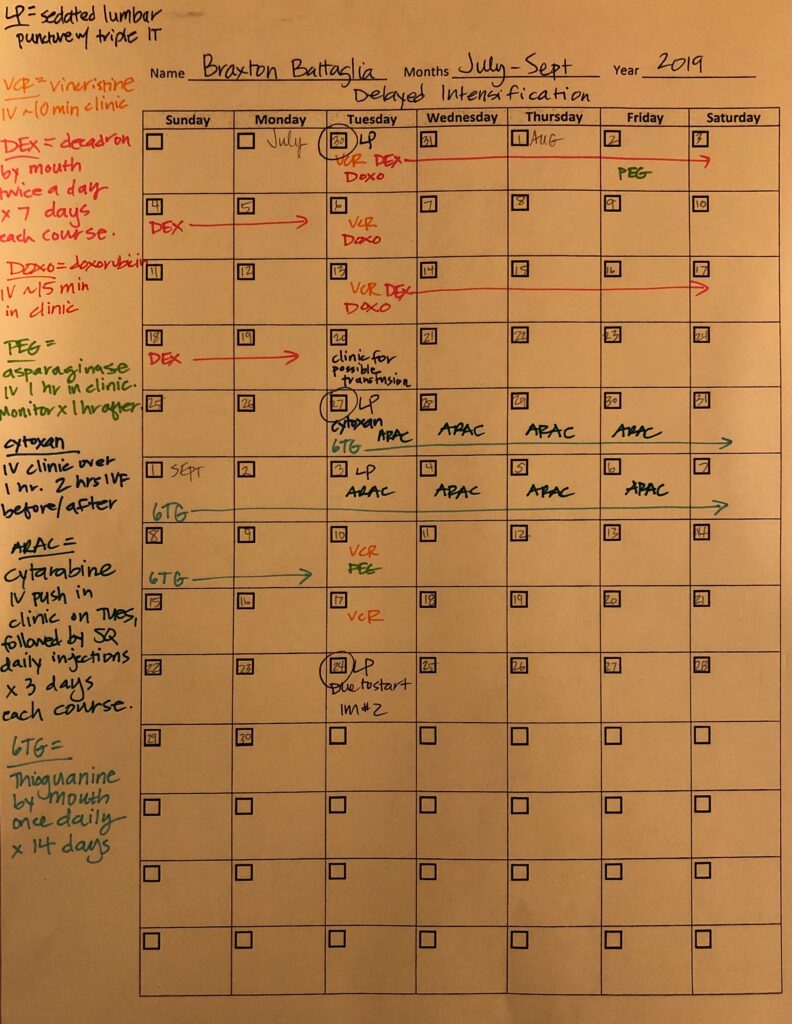 LP = sedated lumbar
puncture w/ triple IT
Name Braxton Battaglia Months July-Sept Year 2019
Delayed Intensification
VCR = vincristine
IV ~10 min clinic
DEX = decadron
by mouth
twice a day
x 7 days
each course.
DOXO = doxorubicin
IV ~15 min
in clinic
PEG =
asparaginase
IV 1 hr in clinic.
Monitor x 1 hr after.
cytoxan
IV clinic over
1 hr. 2 hrs IVF
before/after
ARAC =
Cytarabine
IV push in
clinic on Tues,
followed by SQ
daily injections
x 3 days
each course.
6TG =
Thioguanine
by mouth
once daily
x 14 days
Sunday Monday Tuesday Wednesday Thursday Friday Saturday
July 30 LP 31 1 AUG 2 3
VCR DEX
DOXO PEG
4 5 6 7 8 9 10
DEX VCR
DOXO
11 12 13 14 15 16 17
VCR DEX
DOXO
18 19 20 21 22 23 24
DEX clinic for
possible
transfusion
25 26 27 LP 28 29 30 31
cytoxan
6TG ARAC ARAC ARAC ARAC
1 SEPT 2 3 LP 4 5 6 7
ARAC ARAC ARAC ARAC
6TG
8 9 10 11 12 13 14
VCR
6TG PEG
15 16 17 18 19 20 21
VCR
22 23 24 LP 25 26 27 28
Due to start
IM #2
29 30